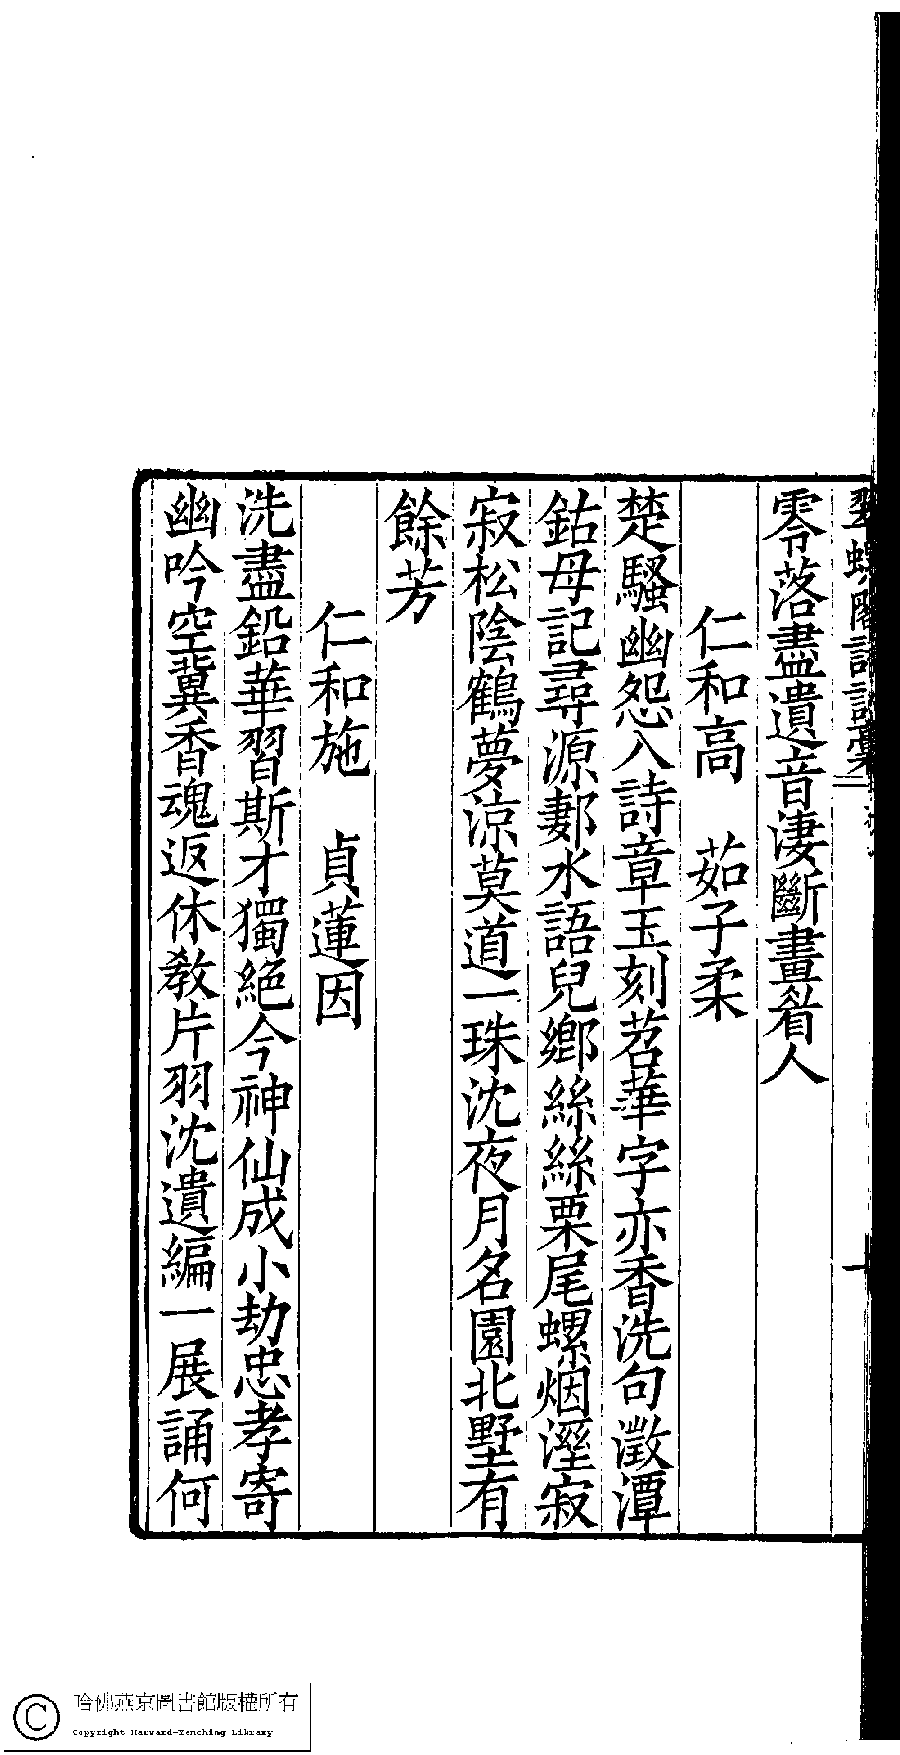 翠螺閣詩詞稾
十
零落盡遺音淒斷畫睂人
仁和高　茹子柔
楚騷幽怨入詩章玉刻苕華字亦香洗句澂潭
鈷母記尋源水語兒鄉絲絲栗尾螺烟溼寂
寂松陰鶴夢涼莫道一珠沈夜月名園北墅有
餘芳
仁和施　貞蓮因
洗盡鉛華習斯才獨絕今神仙成小劫忠孝寄
幽吟空冀香魂返休教片羽沈遺編一展誦何
哈佛燕京圖書館版權所有
Copyright Harvard-Yenching Library